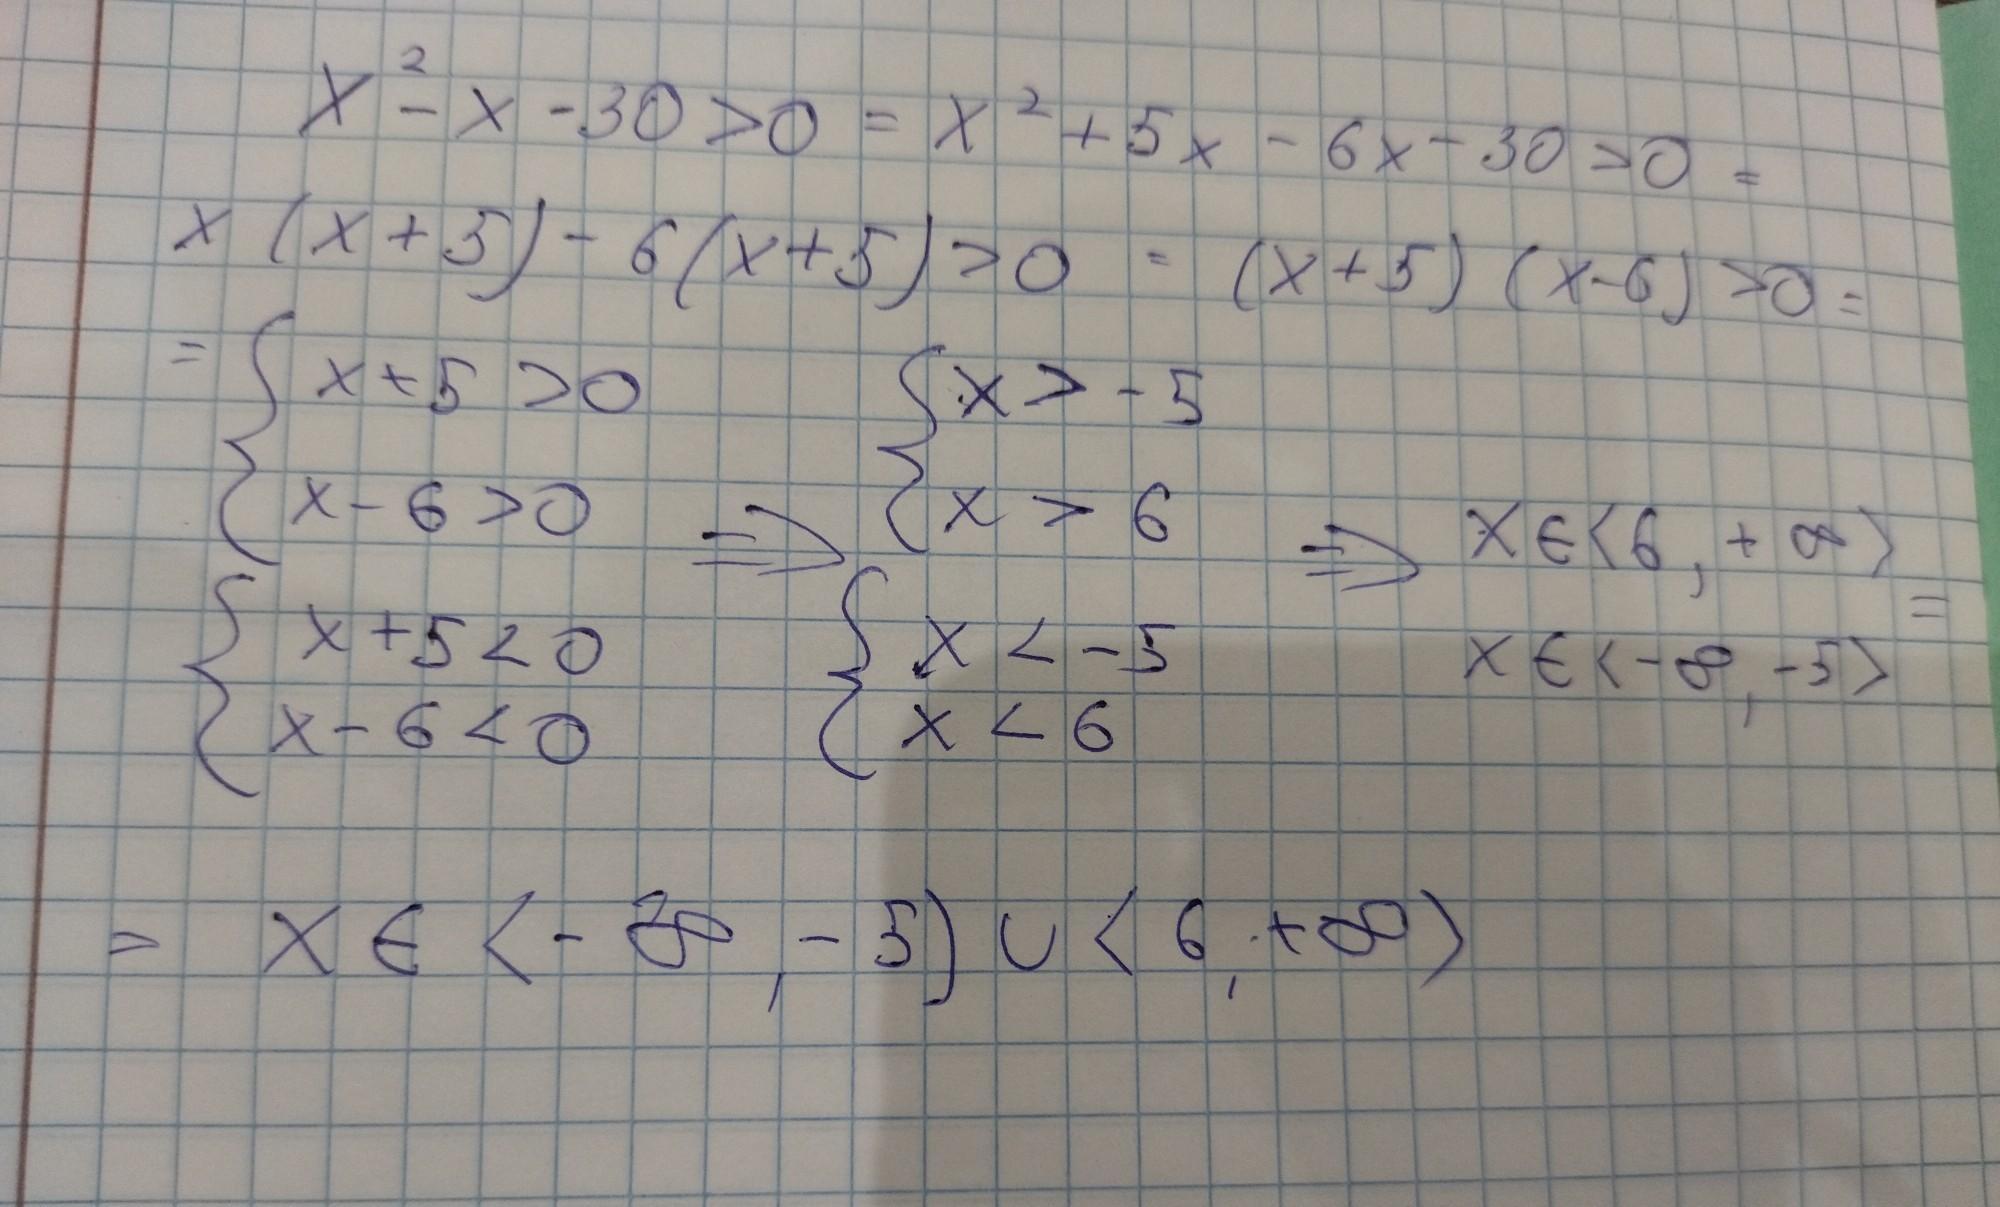 x² - x - 30 > 0 = x² + 5x - 6x - 30 > 0 =
x (x + 5) - 6 (x + 5) > 0 = (x + 5) (x - 6) > 0 =
= { x + 5 > 0 { x > - 5
x - 6 > 0 ⇒ x > 6 ⇒ x ∈ < 6 , + ∞ > =
{ x + 5 < 0 { x < - 5 x ∈ < - ∞ , - 5 >
x - 6 < 0 x < 6
= x ∈ < - ∞ , - 5 ) ∪ < 6 , + ∞ >